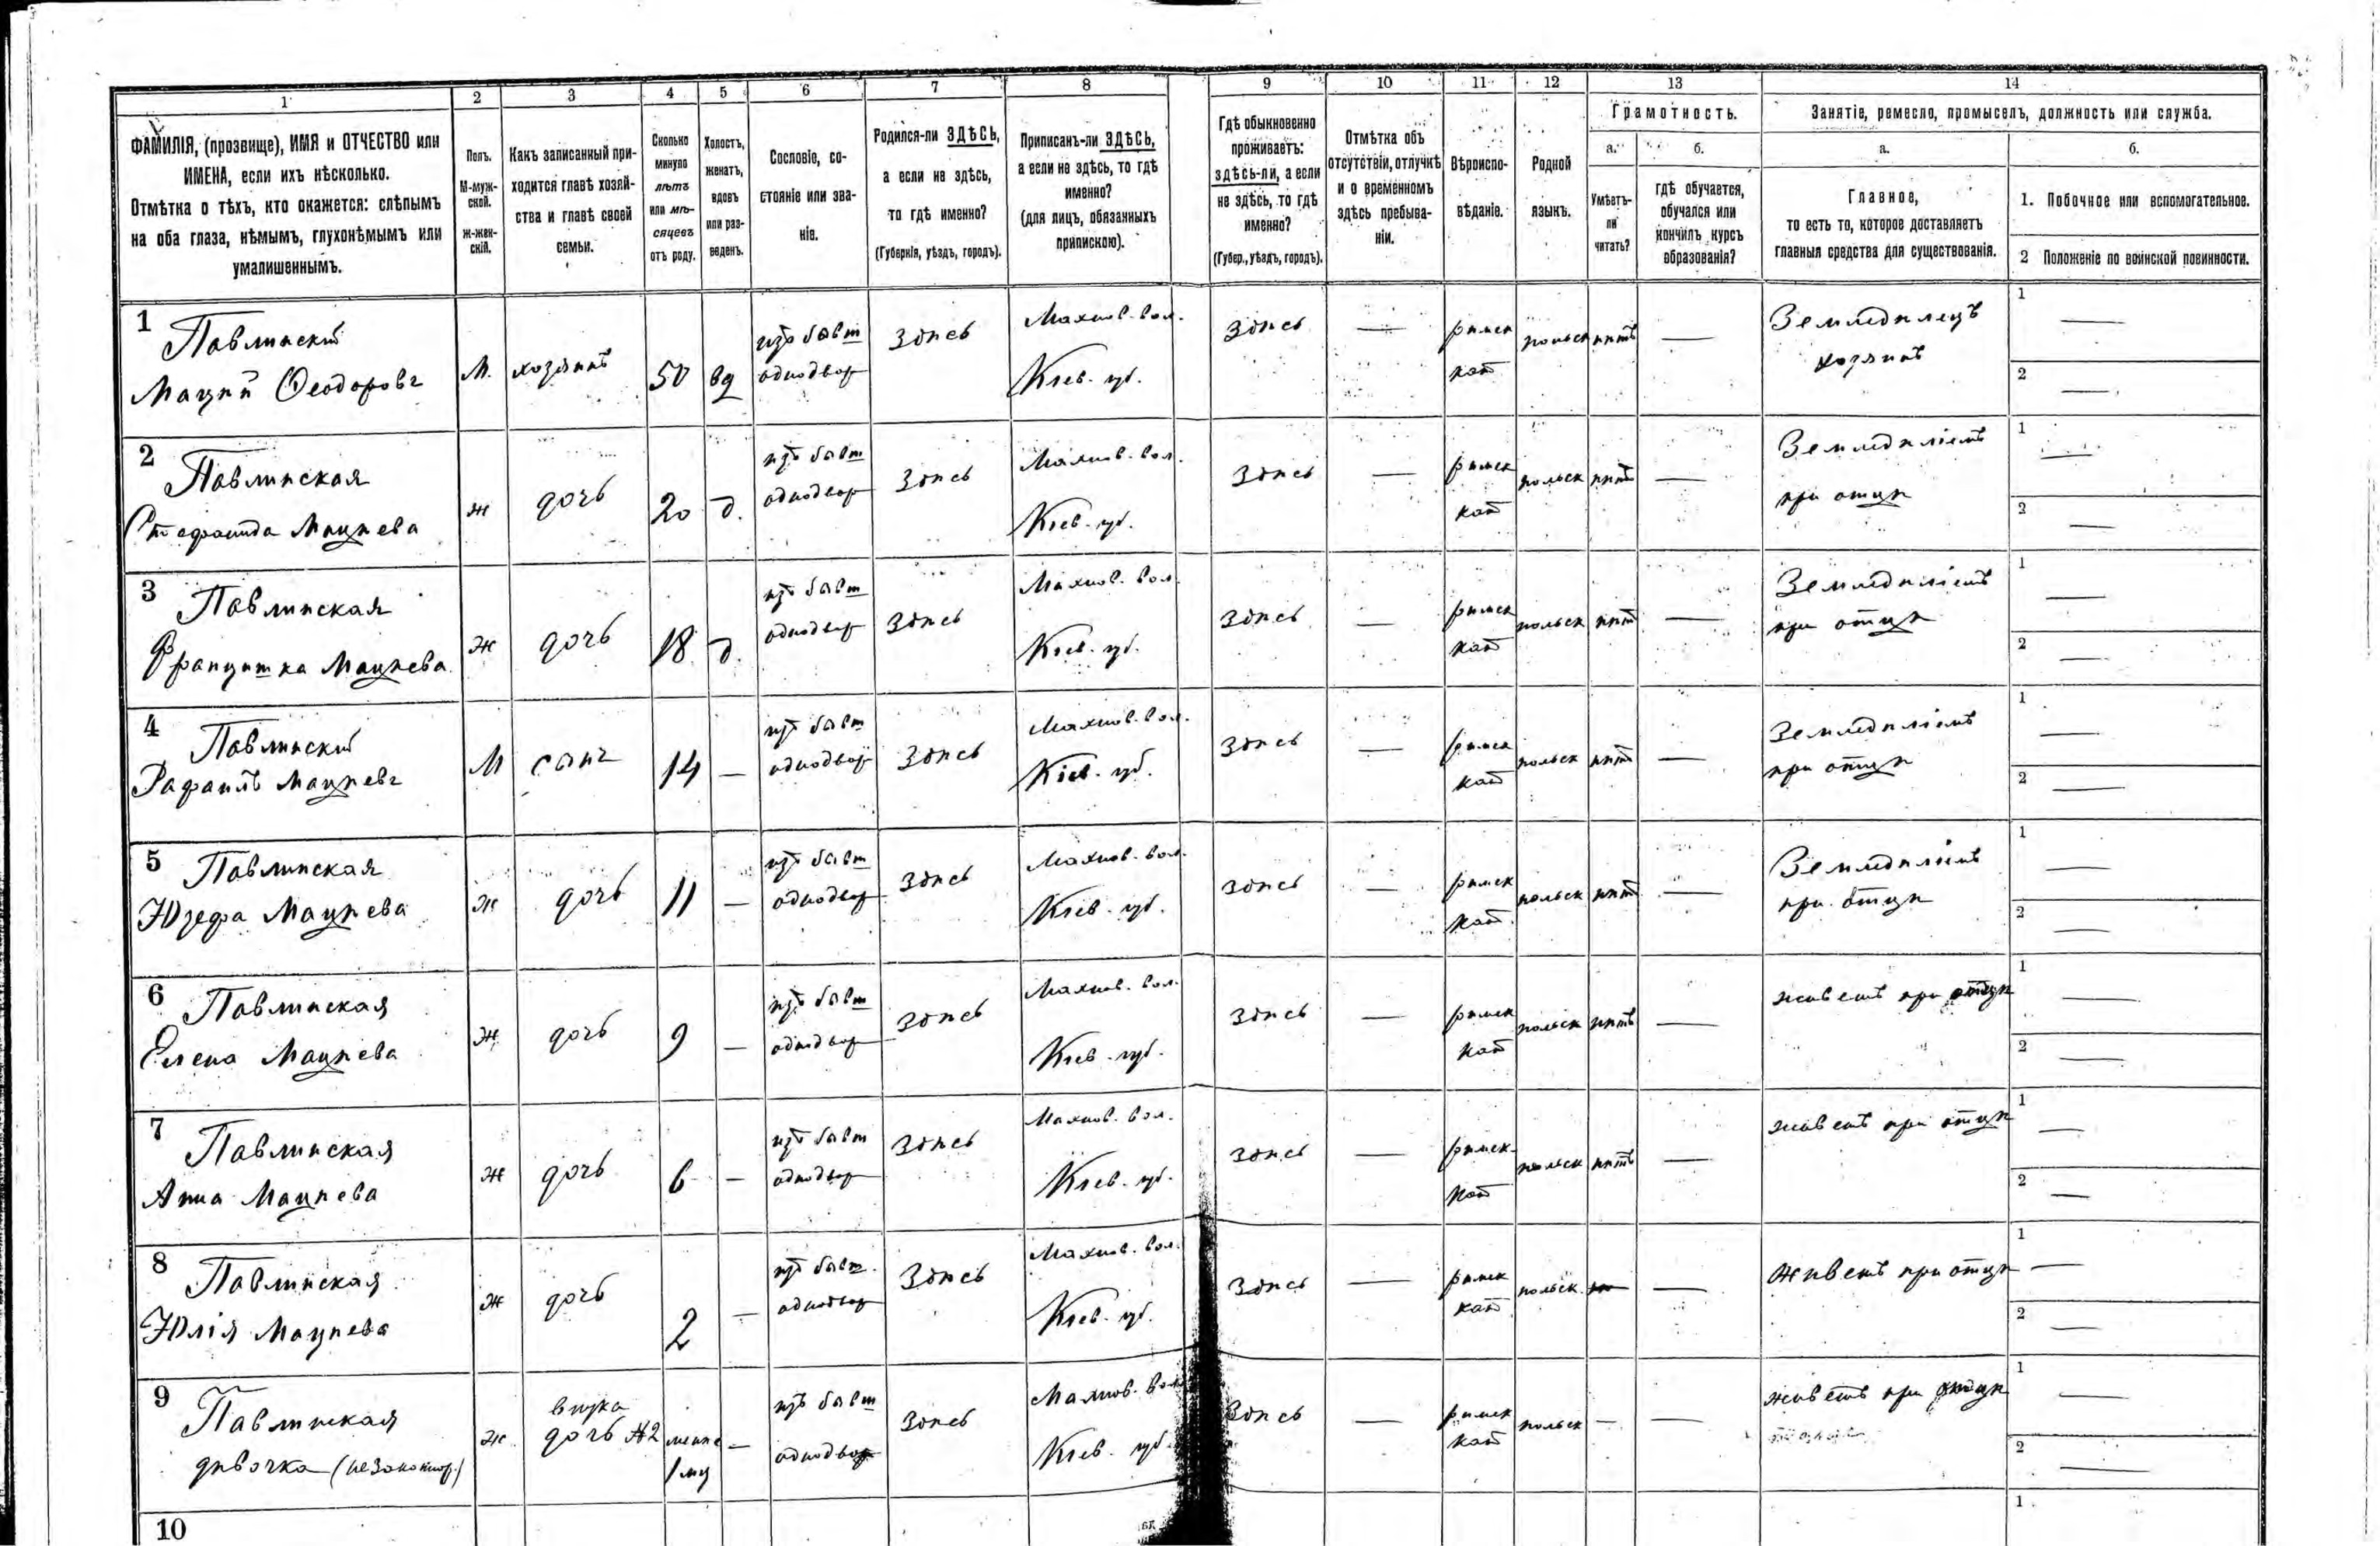 1 2 3 4 5 6 7 8 9 10 11 12 13 14
ФАМИЛІЯ, (прозвище), ИМЯ и ОТЧЕСТВО или
ИМЕНА, если ихъ нѣсколько.
Отмѣтка о тѣхъ, кто окажется: слѣпымъ
на оба глаза, нѣмымъ, глухонѣмымъ или
умалишеннымъ.
Полъ.
М-муж-
ской.
Ж-жен-
скій.
Какъ записанный при-
ходится главѣ хозяй-
ства и главѣ своей
семьи.
Сколько
минуло
лѣтъ
или мѣ-
сяцевъ
отъ роду.
Холостъ,
женатъ,
вдовъ
или раз-
веденъ.
Сословіе, со-
стояніе или зва-
ніе.
Родился-ли ЗДѢСЬ,
а если не здѣсь,
то гдѣ именно?
(Губернія, уѣздъ, городъ).
Приписанъ-ли ЗДѢСЬ,
а если не здѣсь, то гдѣ
именно?
(для лицъ, обязанныхъ
припискою).
Гдѣ обыкновенно
проживаетъ:
здѣсь-ли, а если
не здѣсь, то гдѣ
именно?
(Губер., уѣздъ, городъ).
Отмѣтка объ
отсутствіи, отлучкѣ
и о временномъ
здѣсь пребыва-
ніи.
Вѣроиспо-
вѣданіе.
Родной
языкъ.
Грамотность.
а. б.
Умѣетъ-
ли
читать?
гдѣ обучается,
обучался или
кончилъ курсъ
образованія?
Занятіе, ремесло, промыселъ, должность или служба.
а. б.
Главное,
то есть то, которое доставляетъ
главныя средства для существованія.
1. Побочное или вспомогательное.
2 Положеніе по воинской повинности.
1 Павлинскій
Мацѣй Ѳеодоровъ
М. хозяинъ 50 вд
изъ бывш
однодвор
здѣсь
Махнов. вол.
Кіев. губ.
здѣсь —
римск
кат
польск нѣтъ —
Земледѣлецъ
хозяинъ
1 —
2 —
2 Павлинская
Стефанида Мацѣева
ж дочь 20 д.
изъ бывш
однодвор
здѣсь
Махнов. вол.
Кіев. губ.
здѣсь —
римск
кат
польск нѣтъ —
Земледѣліемъ
при отцѣ
1 —
2 —
3 Павлинская
Францишка Мацѣева
ж дочь 18 д.
изъ бывш
однодвор
здѣсь
Махнов. вол.
Кіев. губ.
здѣсь —
римск
кат
польск нѣтъ —
Земледѣліемъ
при отцѣ
1 —
2 —
4 Павлинскій
Рафаилъ Мацѣевъ
М сынъ 14 —
изъ бывш
однодвор
здѣсь
Махнов. вол.
Кіев. губ.
здѣсь —
римск
кат
польск нѣтъ —
Земледѣліемъ
при отцѣ
1 —
2 —
5 Павлинская
Юзефа Мацѣева
ж дочь 11 —
изъ бывш
однодвор
здѣсь
Махнов. вол.
Кіев. губ.
здѣсь —
римск
кат
польск нѣтъ —
Земледѣліемъ
при отцѣ
1 —
2 —
6 Павлинская
Елена Мацѣева
ж дочь 9 —
изъ бывш
однодвор
здѣсь
Махнов. вол.
Кіев. губ.
здѣсь —
римск
кат
польск нѣтъ —
живетъ при отцѣ
1 —
2 —
7 Павлинская
Анна Мацѣева
ж дочь 6 —
изъ бывш
однодвор
здѣсь
Махнов. вол.
Кіев. губ.
здѣсь —
римск
кат
польск нѣтъ —
живетъ при отцѣ
1 —
2 —
8 Павлинская
Юлія Мацѣева
ж дочь 2 —
изъ бывш
однодвор
здѣсь
Махнов. вол.
Кіев. губ.
здѣсь —
римск
кат
польск —
живетъ при отцѣ
1 —
2 —
9 Павлинская
дѣвочка (незаконнор.)
ж.
внука
дочь №2
менѣе
1 мц
—
изъ бывш
однодвор
здѣсь
Махнов. вол.
Кіев. губ.
здѣсь —
римск
кат
польск — —
живетъ при
1 —
2 —
10
1